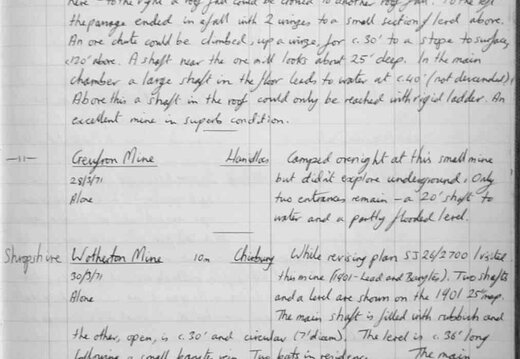 here - to the right a roof fall could be crossed to another roof fall. To the left
the passage ended in a fall with 2 winzes to a small section / level above.
An ore chute could be climbed, up a winze, for c.30' to a stope to surface,
c120' above. A shaft near the ore mill looks about 25' deep. In the main
chamber a large shaft in the floor leads to water at c.40' (not descended).
Above this a shaft in the roof could only be reached with rigid ladder. An
excellent mine in superb condition.
—11— Creufron Mine Hanidloes Camped overnight at this small mine
28/3/71 but didn't explore underground. Only
Alone two entrances remain - a 20' shaft to
water and a partly flooded level.
Shropshire Wotherton Mine 10m Chirbury While revising plan SJ 26/2700 I visited
30/3/71 this mine (1901 - Lead and Barytes). Two shafts
Alone and a level are shown on the 1901 25" map.
The main shaft is filled with rubbish and
the other, open, is c.30' and circular (7' diam). The level is c.36' long
following a small barytes vein. Two bats in residence. The main